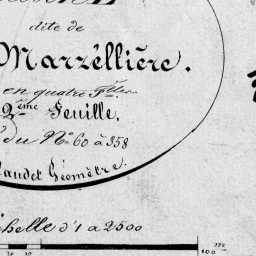 dite de
Marzéllière.
en quatre Flles
2ème Feuille.
du No 60 à 358
Géomètre.
chelle d'1 a 2500